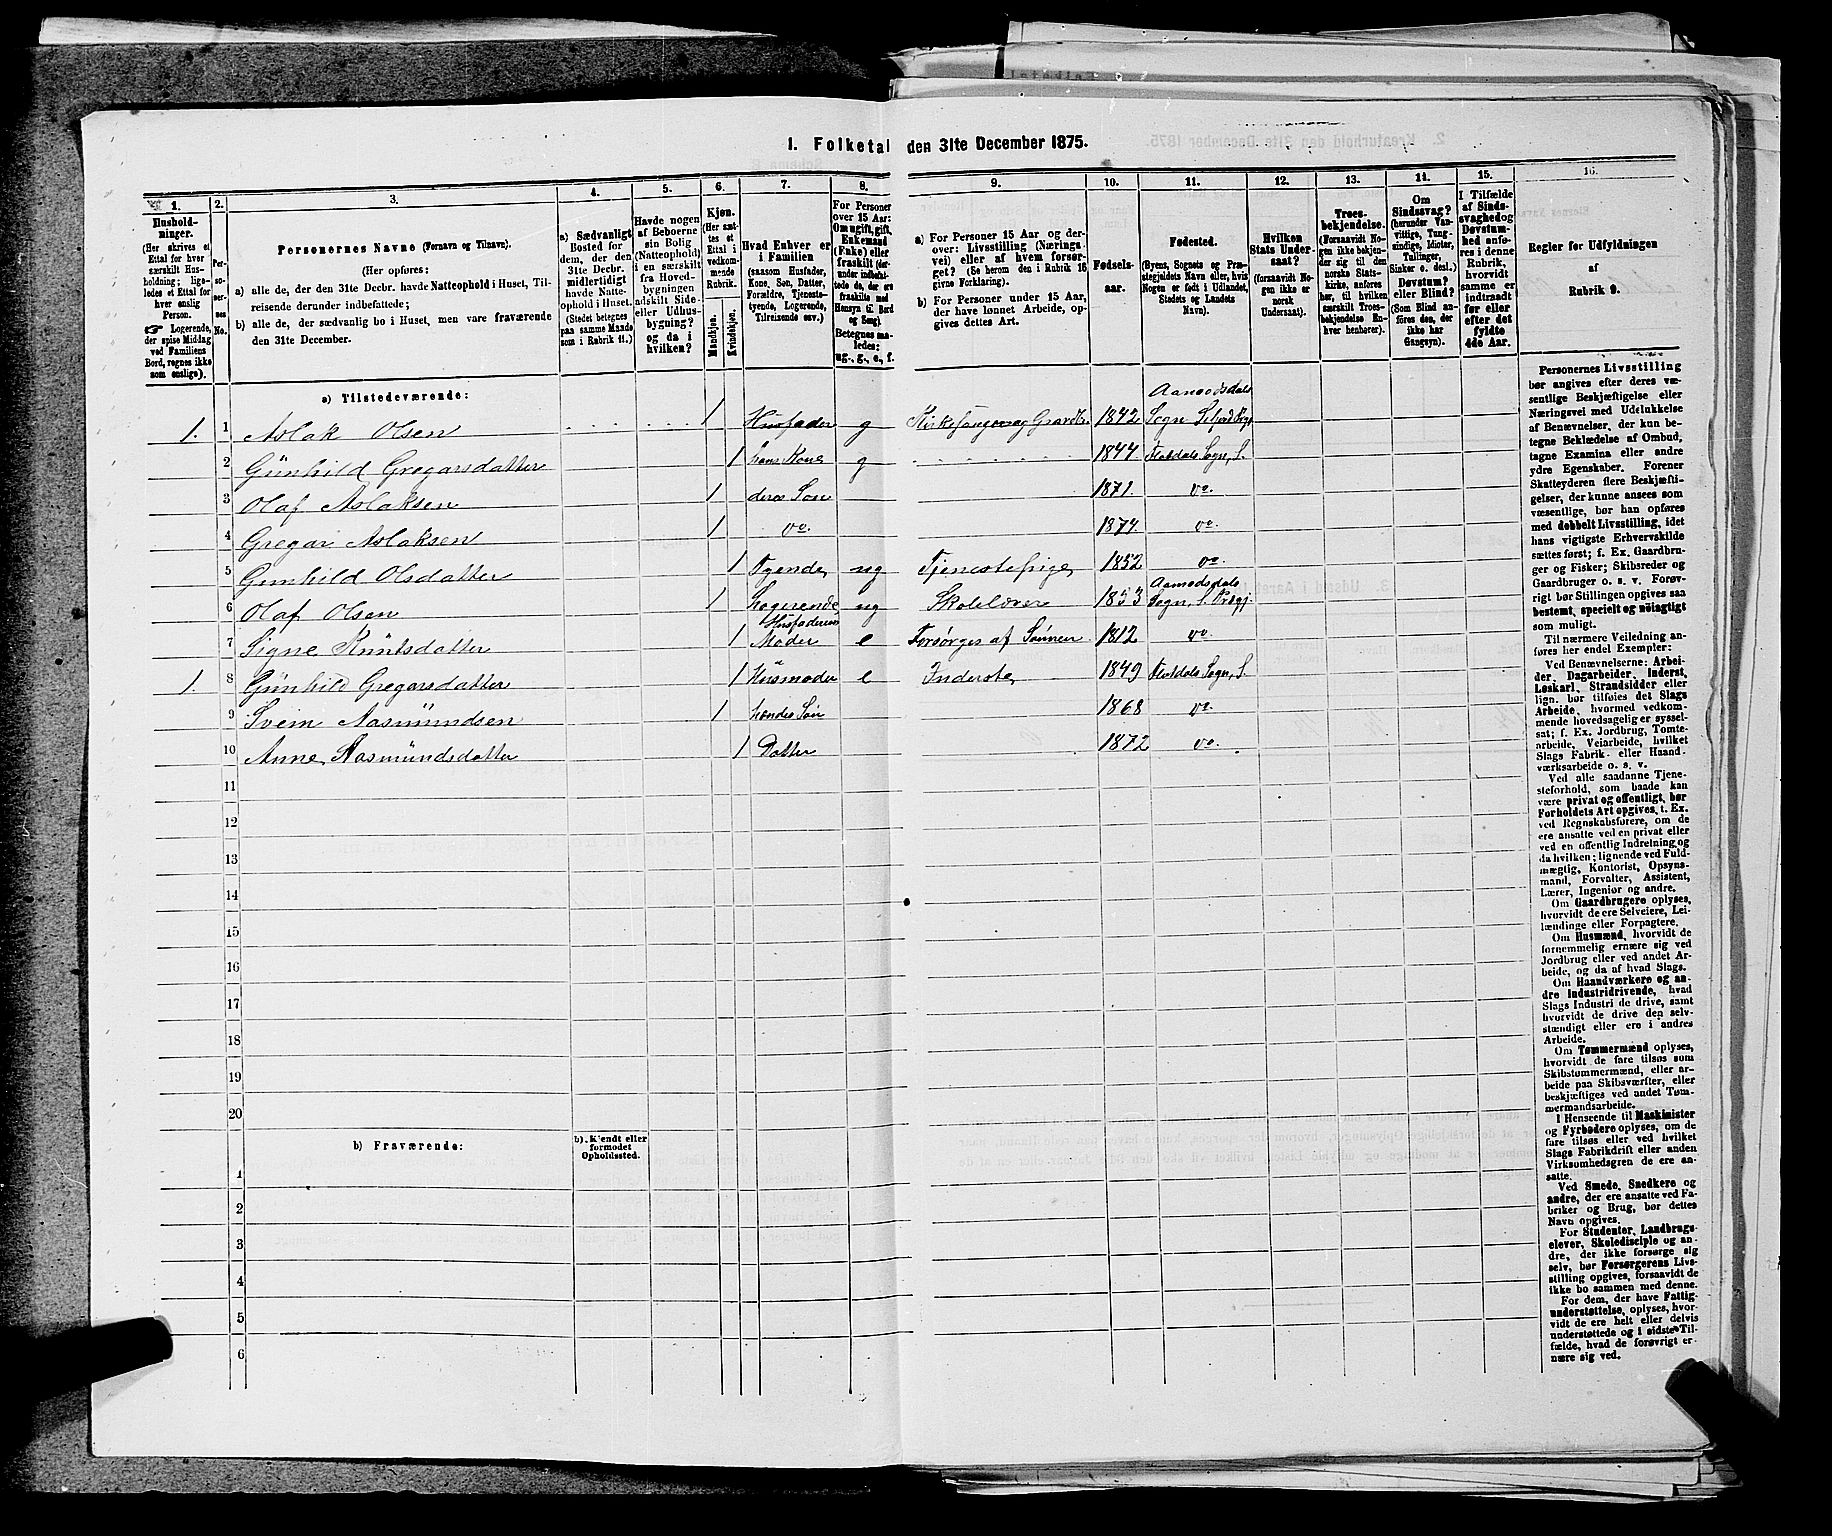 1. Folketal den 31te December 1875.
1.
Husholdninger.
(Her skrives et
Ettal for hver
særskilt Husholdning;
ligeledes et Ettal for
hver enslig
Person.
Logerende,
der spise Middag
ved Familiens
Bord, regnes ikke
som enslige).
2.
Personernes No.
3.
Personernes Navne (Fornavn og Tilnavn).
(Her opføres:
a) alle de, der den 31te Decbr. havde Natteophold i Huset, Tilreisende derunder indbefattede;
b) alle de, der sædvanlig bo i Huset, men vare fraværende
den 31te December.
4.
a) Sædvanligt
Bosted for
dem, der den
31te Decbr.
midlertidigt
havde Natteophold i Huset.
(Stedet betegnes
paa samme Maade
som i Rubrik 11.)
5.
Havde nogen
af Beboerne
sin Bolig
(Natteophold)
i en særskilt
fra Hovedbygningen
adskilt Side-
eller Udhusbygning?
og da i
hvilken?
6.
Kjøn.
(Her sættes et
Ettal i
vedkommende
Rubrik.
Mandkjøn.
Kvindekjøn.
7.
Hvad Enhver er
i Familien
(saasom Husfader,
Kone, Søn, Datter,
Forældre, Tjenestetyende, Logerende,
Tilreisende osv.)
8.
For Personer
over 15 Aar:
Om ugift, gift,
Enkemand
(Enke) eller
fraskilt (derunder indbefattede de, der ere
fraskilte med
Hensyn til Bord
og Seng)
Betegnes maaledes:
ug., g., e., f.
9.
a) For Personer 15 Aar og derover: Livsstilling (Næringsvei) eller af hvem forsørget? (Se herom den i Rubrik 16
givne Forklaring).
b) For Personer under 15 Aar,
der have lønnet Arbeide, opgives dettes Art.
10.
Fødselsaar.
11.
Fødested.
(Byens, Sognets og Præstegjeldets Navn eller, hvis
Nogen er født i Udlandet,
Stedets og Landets
Navn).
12.
Hvilken
Stats Undersaat?
(forsaavidt Nogen ikke er
norsk
Undersaat).
13.
Troesbekjendelse.
(Forsaavidt Nogen ikke bekjender sig til den
norske Statskirke, anføres
her, til hvilken
særskilt Troesbekjendelse Enhver henhører).
14.
Om
Sindssvag?
(herunder Vanvittige, Tungsindige, Idioter,
Tullinger,
Sinker o. desl.)
Døvstum?
eller Blind?
(Som Blind anføres den, der
ikke har
Gangsyn).
15.
I Tilfælde
af Sindssvaghed og
Døvstumhed anføres i denne
Rubrik,
hvorvidt
samme er
indtraadt
før eller
efter det
fyldte
4de Aar.
16.
Regler for Udfyldningen
af
Rubrik 9.
a) Tilstedeværende:
1. 1 Aslak Olsen 1 Husfader g Kirkesanger og Gaardbr. 1842 Aamodsdals Sogn Seljord Prgj.
2 Günhild Gregarsdatter 1 hans Kone g 1844 Flatdals Sogn, S.
3 Olaf Aslaksen 1 deres Søn 1871. do.
4 Gregar Aslaksen 1 do. 1874 do.
5 Gunhild Olsdatter 1 Tyende, ug Tjenestepige, 1852 do.
6 Olaf Olsen 1 Logerende ug Skolelærer 1853 Aamodsdals Sogn, S. Præstgj.
7 Signe Knutsdatter 1 Husfaderens Moder e Forsørges af Sønnen 1812 do
1. 8 Günhild Gregarsdatter 1 Husmoder e Inderste, 1849 Flatdals Sogn, S.
9 Svein Aasmündsen 1 hendes Søn 1868 do
10 Anne Aasmündsdatter 1 Datter 1872 do.
11
12
13
14
15
16
17
18
19
20
b) Fraværende:
b). Kjendt eller
formodet
Opholdssted.
1
2
3
4
5
6
Personernes Livsstilling
bør angives efter deres væsentlige Beskjæftigelse eller
Næringsvei med Udelukkelse
af Benævnelser, der kun betegne Beklædelse af Ombud,
tagne Examina eller andre
ydre Egenskaber. Forener
Skatteyderen flere Beskjæftigelser, der kunne ansees som
væsentlige, bør han opføres
med dobbelt Livsstilling, idet
hans vigtigste Erhvervskilde
sættes først; f. Ex. Gaardbruger og Fisker; Skibsreder og
Gaardbruger o. s. v. Forøvrigt bør Stillingen opgives saa
bestemt, specielt og nøiagtigt
som muligt.
Til nærmere Veiledning anføres her endel Exempler:
Ved Benævnelserne: Arbeider, Dagarbeider, Inderst,
Løskarl, Strandsidder eller
lign. bør tilføies det Slags
Arbeide, hvormed vedkommende hovedsagelig er sysselsat; f. Ex. Jordbrug, Tomtearbeide, Veiarbeide, hvilket
Slags Fabrik- eller Haandværksarbeide o. s. v.
Ved alle saadanne Tjenesteforhold, som baade kan
være privat og offentligt, bør
Forholdets Art opgives, t. Ex.
ved Regnskabsførere, om de
ere ansatte ved en privat eller
ved en offentlig Indretning og
da hvilken; lignende ved Fuldmægtig, Kontorist, Opsynsmand, Forvalter, Assistent,
Lærer, Ingeniør og andre.
Om Gaardbrugere oplyses,
hvorvidt de ere Selveiere, Leilændinge eller Forpagtere.
Om Husmænd, hvorvidt de
fornemmelig ernære sig ved
Jordbrug eller ved andet Arbeide, og da af hvad Slags.
Om Haandværkere og andre Industridrivende, hvad
Slags Industri de drive, samt
hvorvidt de drive den selvstændigt eller ere i andres
Arbeide.
Om Tømmermænd oplyses,
hvorvidt de fare tilsøs som
Skibstømmermænd, eller arbeide paa Skibsværfter, eller
beskjæftiges ved andet Tømmermandsarbeide.
I Henseende til Maskinister
og Fyrbødere oplyses, om de
fare tilsøs eller ved hvilket
Slags Fabrikdrift eller anden
Virksomhedsgren de ere ansatte.
Ved Smede, Snedkere og
andre, der ere ansatte ved Fabriker og Brug, bør dettes
Navn opgives.
For Studenter, Landbrugselever, Skoledisciple og andre, der ikke forsørge sig
selv, bør Forsørgerens Livsstilling opgives, forsaavidt de
ikke bo sammen med denne.
For dem, der have Fattigunderstøttelse, oplyses, hvorvidt de ere helt eller delvis
understøttede og i sidste Tilfælde, hvad de forøvrigt ernære sig ved.